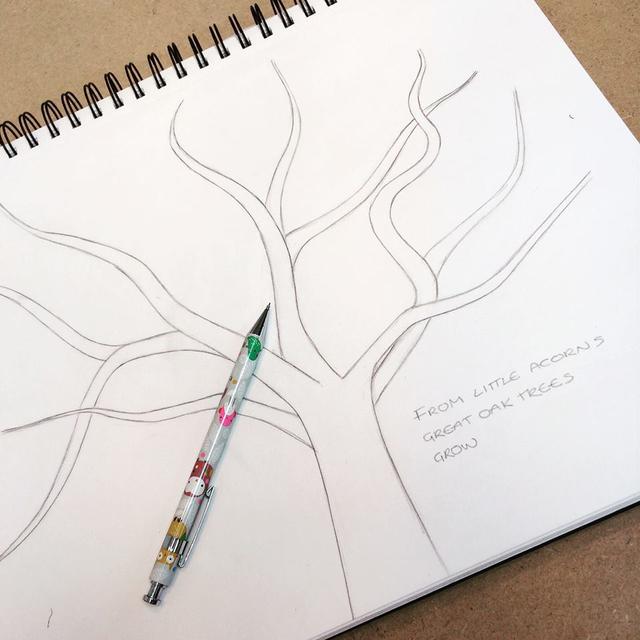 FROM LITTLE ACORNS
GREAT OAK TREES
GROW